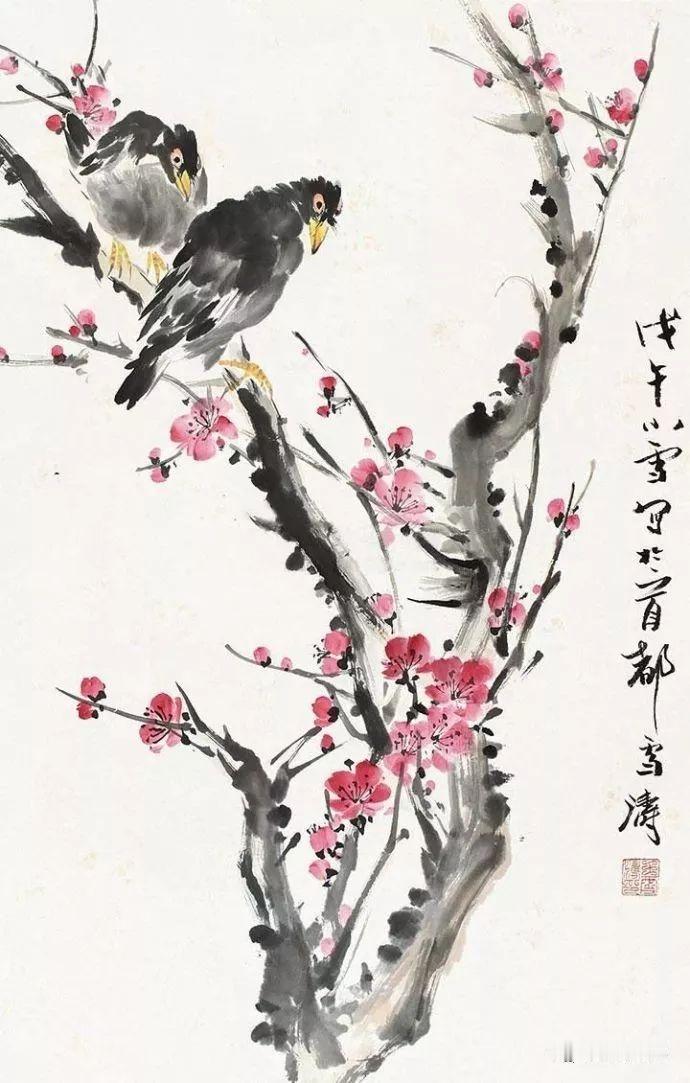 戊午小雪写於首都雪涛